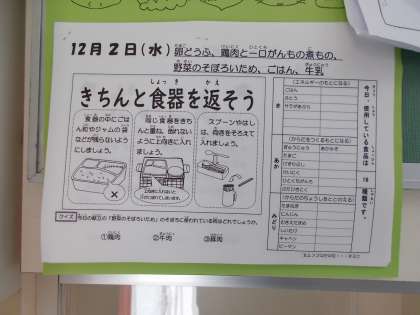 12月2日(水)
卵どうふ、鶏肉と一口がんもの煮もの、
野菜のそぼろいため、ごはん、牛乳
きちんと食器を返そう
しょっき
かえ
食器の中にごは
ん粒やジャムの袋
などが残らないよう
にしましょう。
同じ食器をきち
んと重ね、倒れない
ように上向きに入れ
ましょう。
スプーンやはし
は、向きをそろえて
入れましょう。
クイズ
今日の献立の「野菜のそぼろいため」のそぼろに使われている肉はどれでしょうか。
①鶏肉
②牛肉
③豚肉
今日、使用している食品は
18
種類です。
き
(エネルギーのもとになる)
ごはん
さとう
あか
(からだをつくるもとになる)
ぎゅうにゅう
たまご
とりにく
みどり
(からだのちょうしをととのえる)
たまねぎ
にんじん
しいたけ
キャベツ
ピーマン